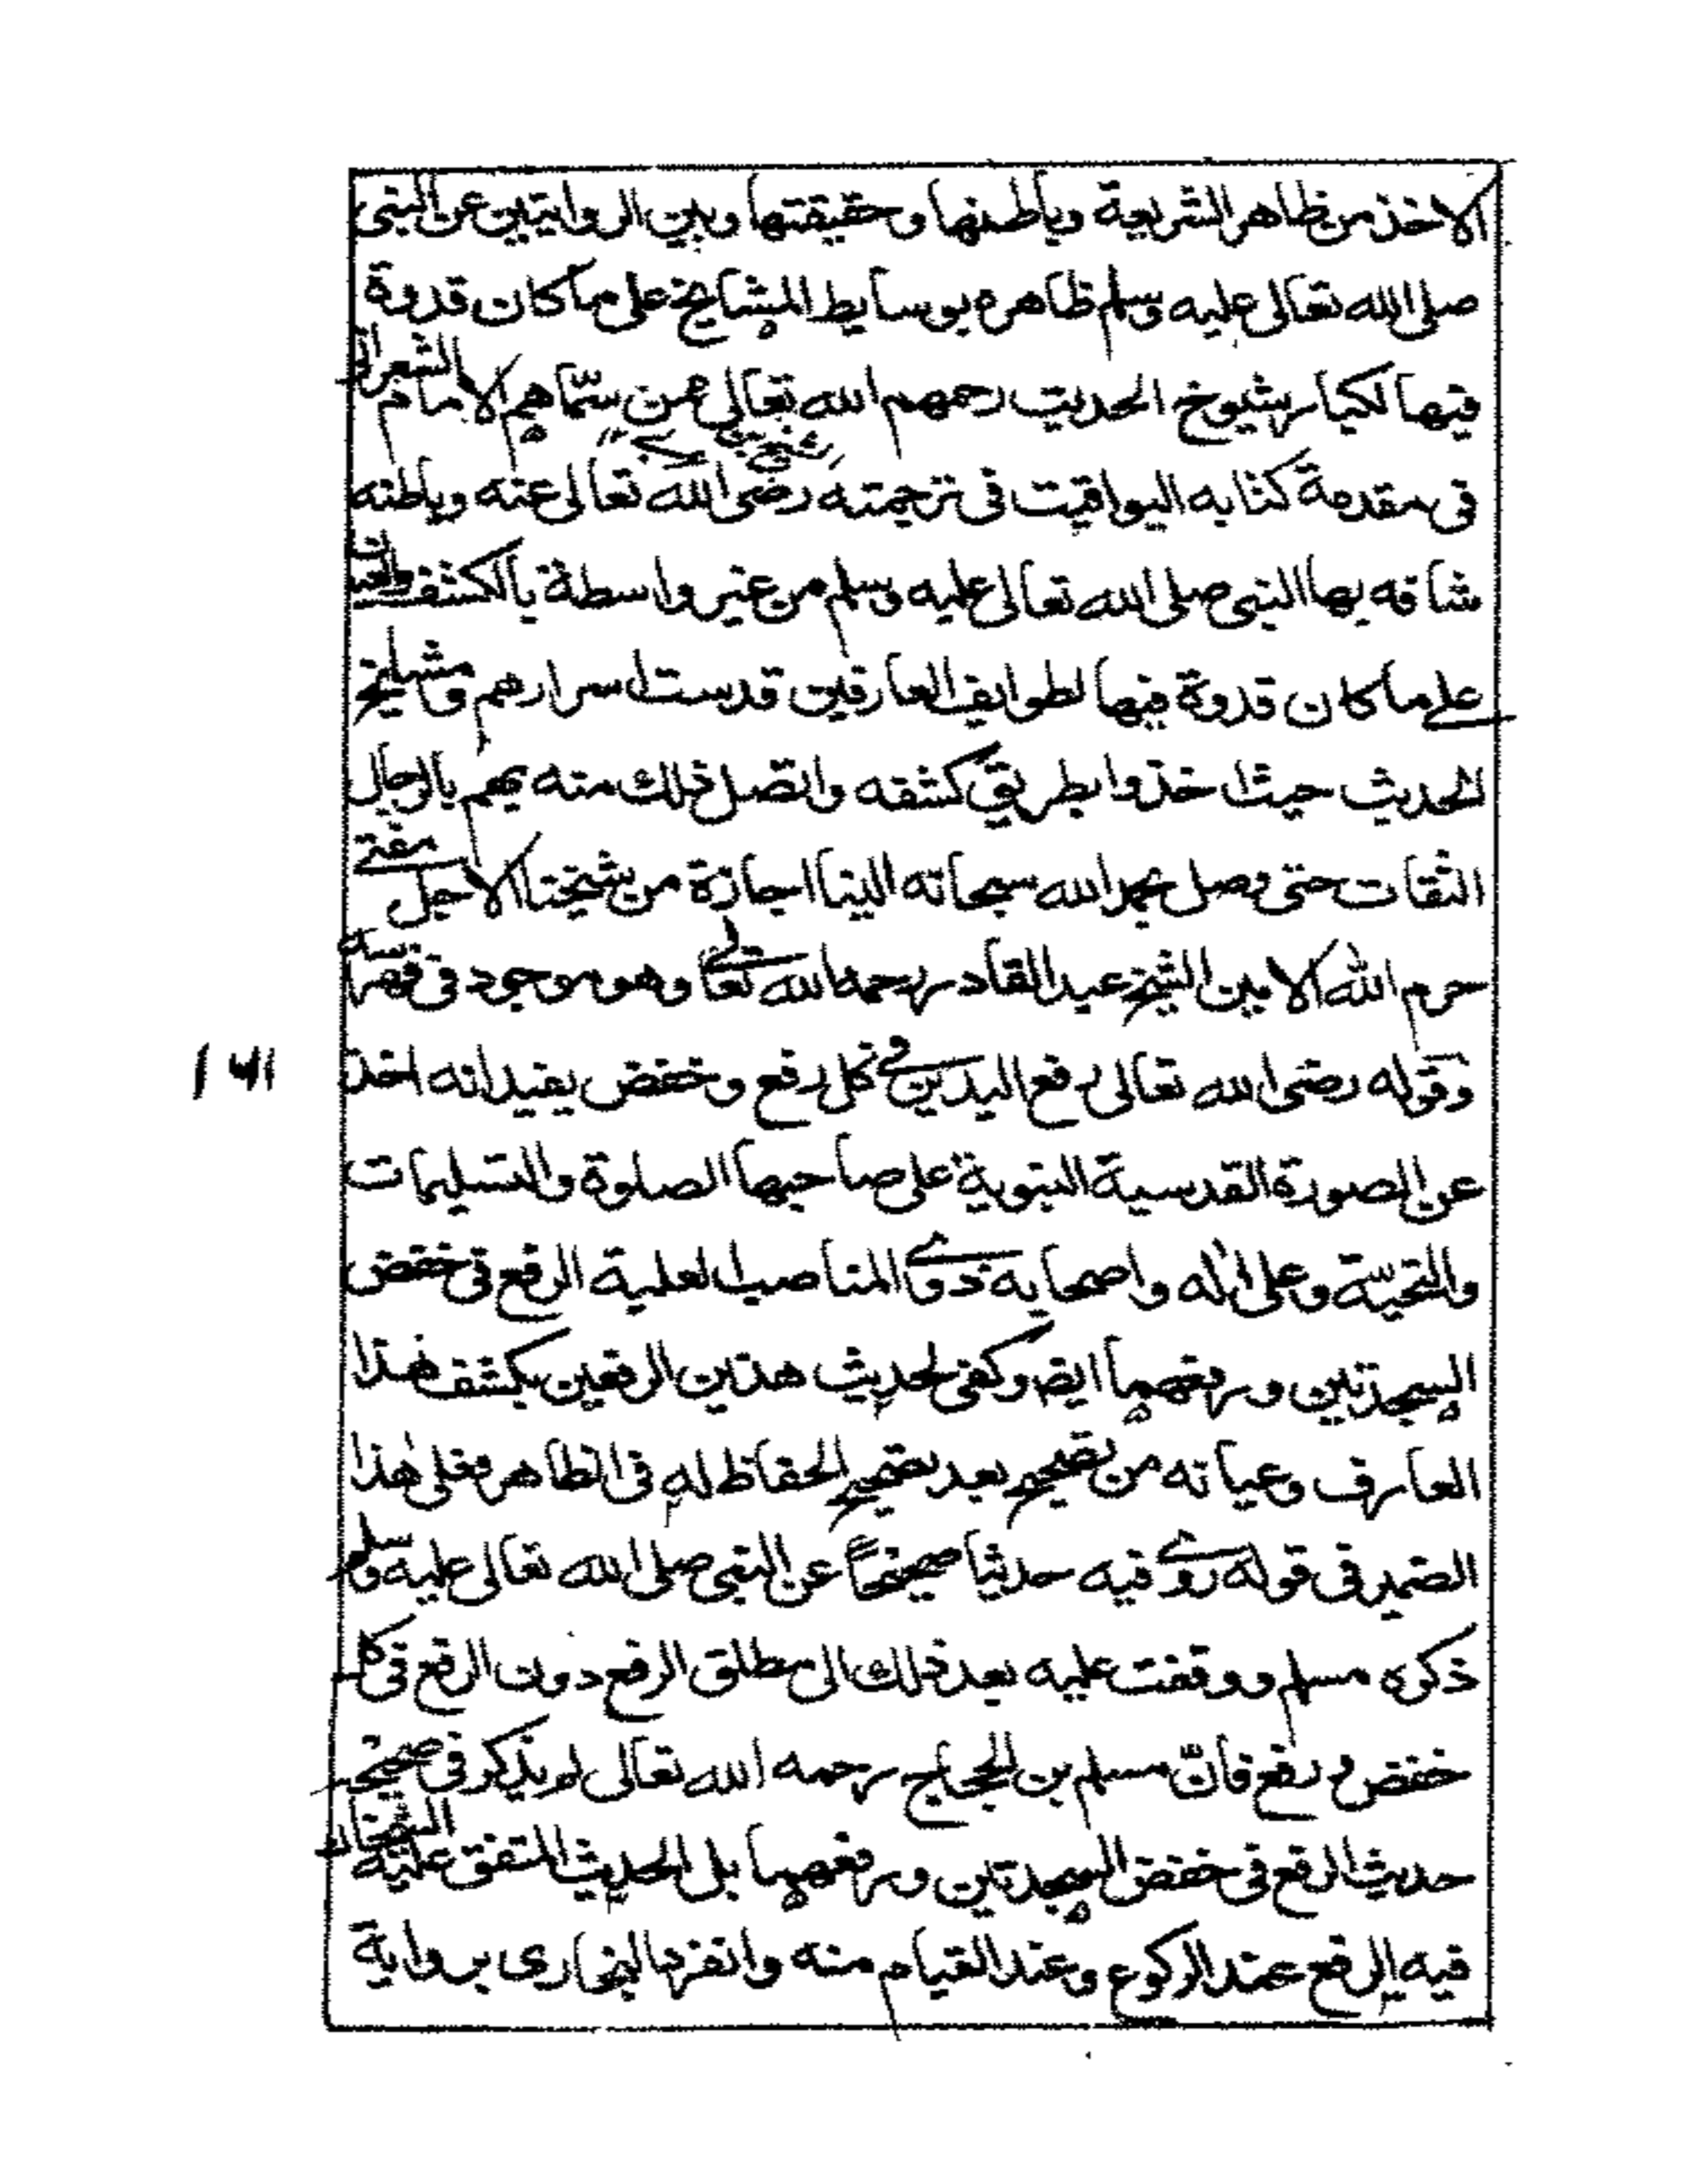 الاخذ من ظاهر الشريعة وباطنها وحقيقتها وبين الروايتين عن النبى
صلى الله تعالى عليه وسلم ظاهره بوسايط المشايخ على ما كان قدوة
فيها لكبار شيوخ الحديث رحمهم الله تعالى ممن سمّاهم الامام الشعرانى
فى مقدمة كتابه اليواقيت فى ترجمته رضى الله تعالى عنه وباطنه
شافه بها النبى صلى الله تعالى عليه وسلم من غير واسطة بالكشف والعيان
على ما كان قدوة فيها لطوايف العارفين قدست اسرارهم ومشايخ
الحديث حيث اخذوا بطريق كشفه واتصل ذلك منه بهم بالرجال
الثقات حتى وصل بحمد الله سبحانه الينا اجازة من شيخنا الاجل مفتى
حرم الله الامين الشيخ عبد القادر رحمه الله تعالى وهو موجود فى فهرسه
وقوله رضى الله تعالى رفع اليدين فى كل رفع وخفض يفيد انه اخذ
عن الصورة القدسية النبوية على صاحبها الصلوة والتسليمات
والتحيّة وعلى اٰله واصحابه ذوى المناصب العلية الرفع فى خفض
السجدتين ورفعهما ايض وكفى لحديث هذين الرفعين بكشف هذا
العارف وعيانه من تصحيح بعد تصحيح الحفاظ له فى الظاهر فعلى هٰذا
الضمير فى قوله روى فيه حديثا صحيحاً عن النبى صلى الله تعالى عليه وسلم
ذكره مسلم ووقفت عليه بعد ذلك الى مطلق الرفع دون الرفع فى كل
خفض ورفع فانّ مسلم بن الحجاج رحمه الله تعالى لم يذكر فى صحيحه
حديث الرفع فى خفض السجدتين ورفعهما بل الحديث المتفق عليه الشيخان
فيه الرفع عند الركوع وعند القيام منه وانفرد البخارى برواية
١٧١